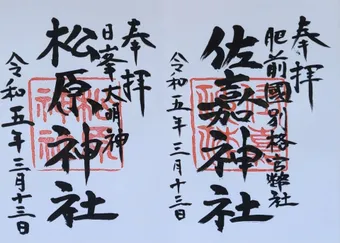 奉拝
肥前國別格官幣社
佐嘉神社
令和五年三月十三日
奉拝
日峯大明神
松原神社
令和五年三月十三日